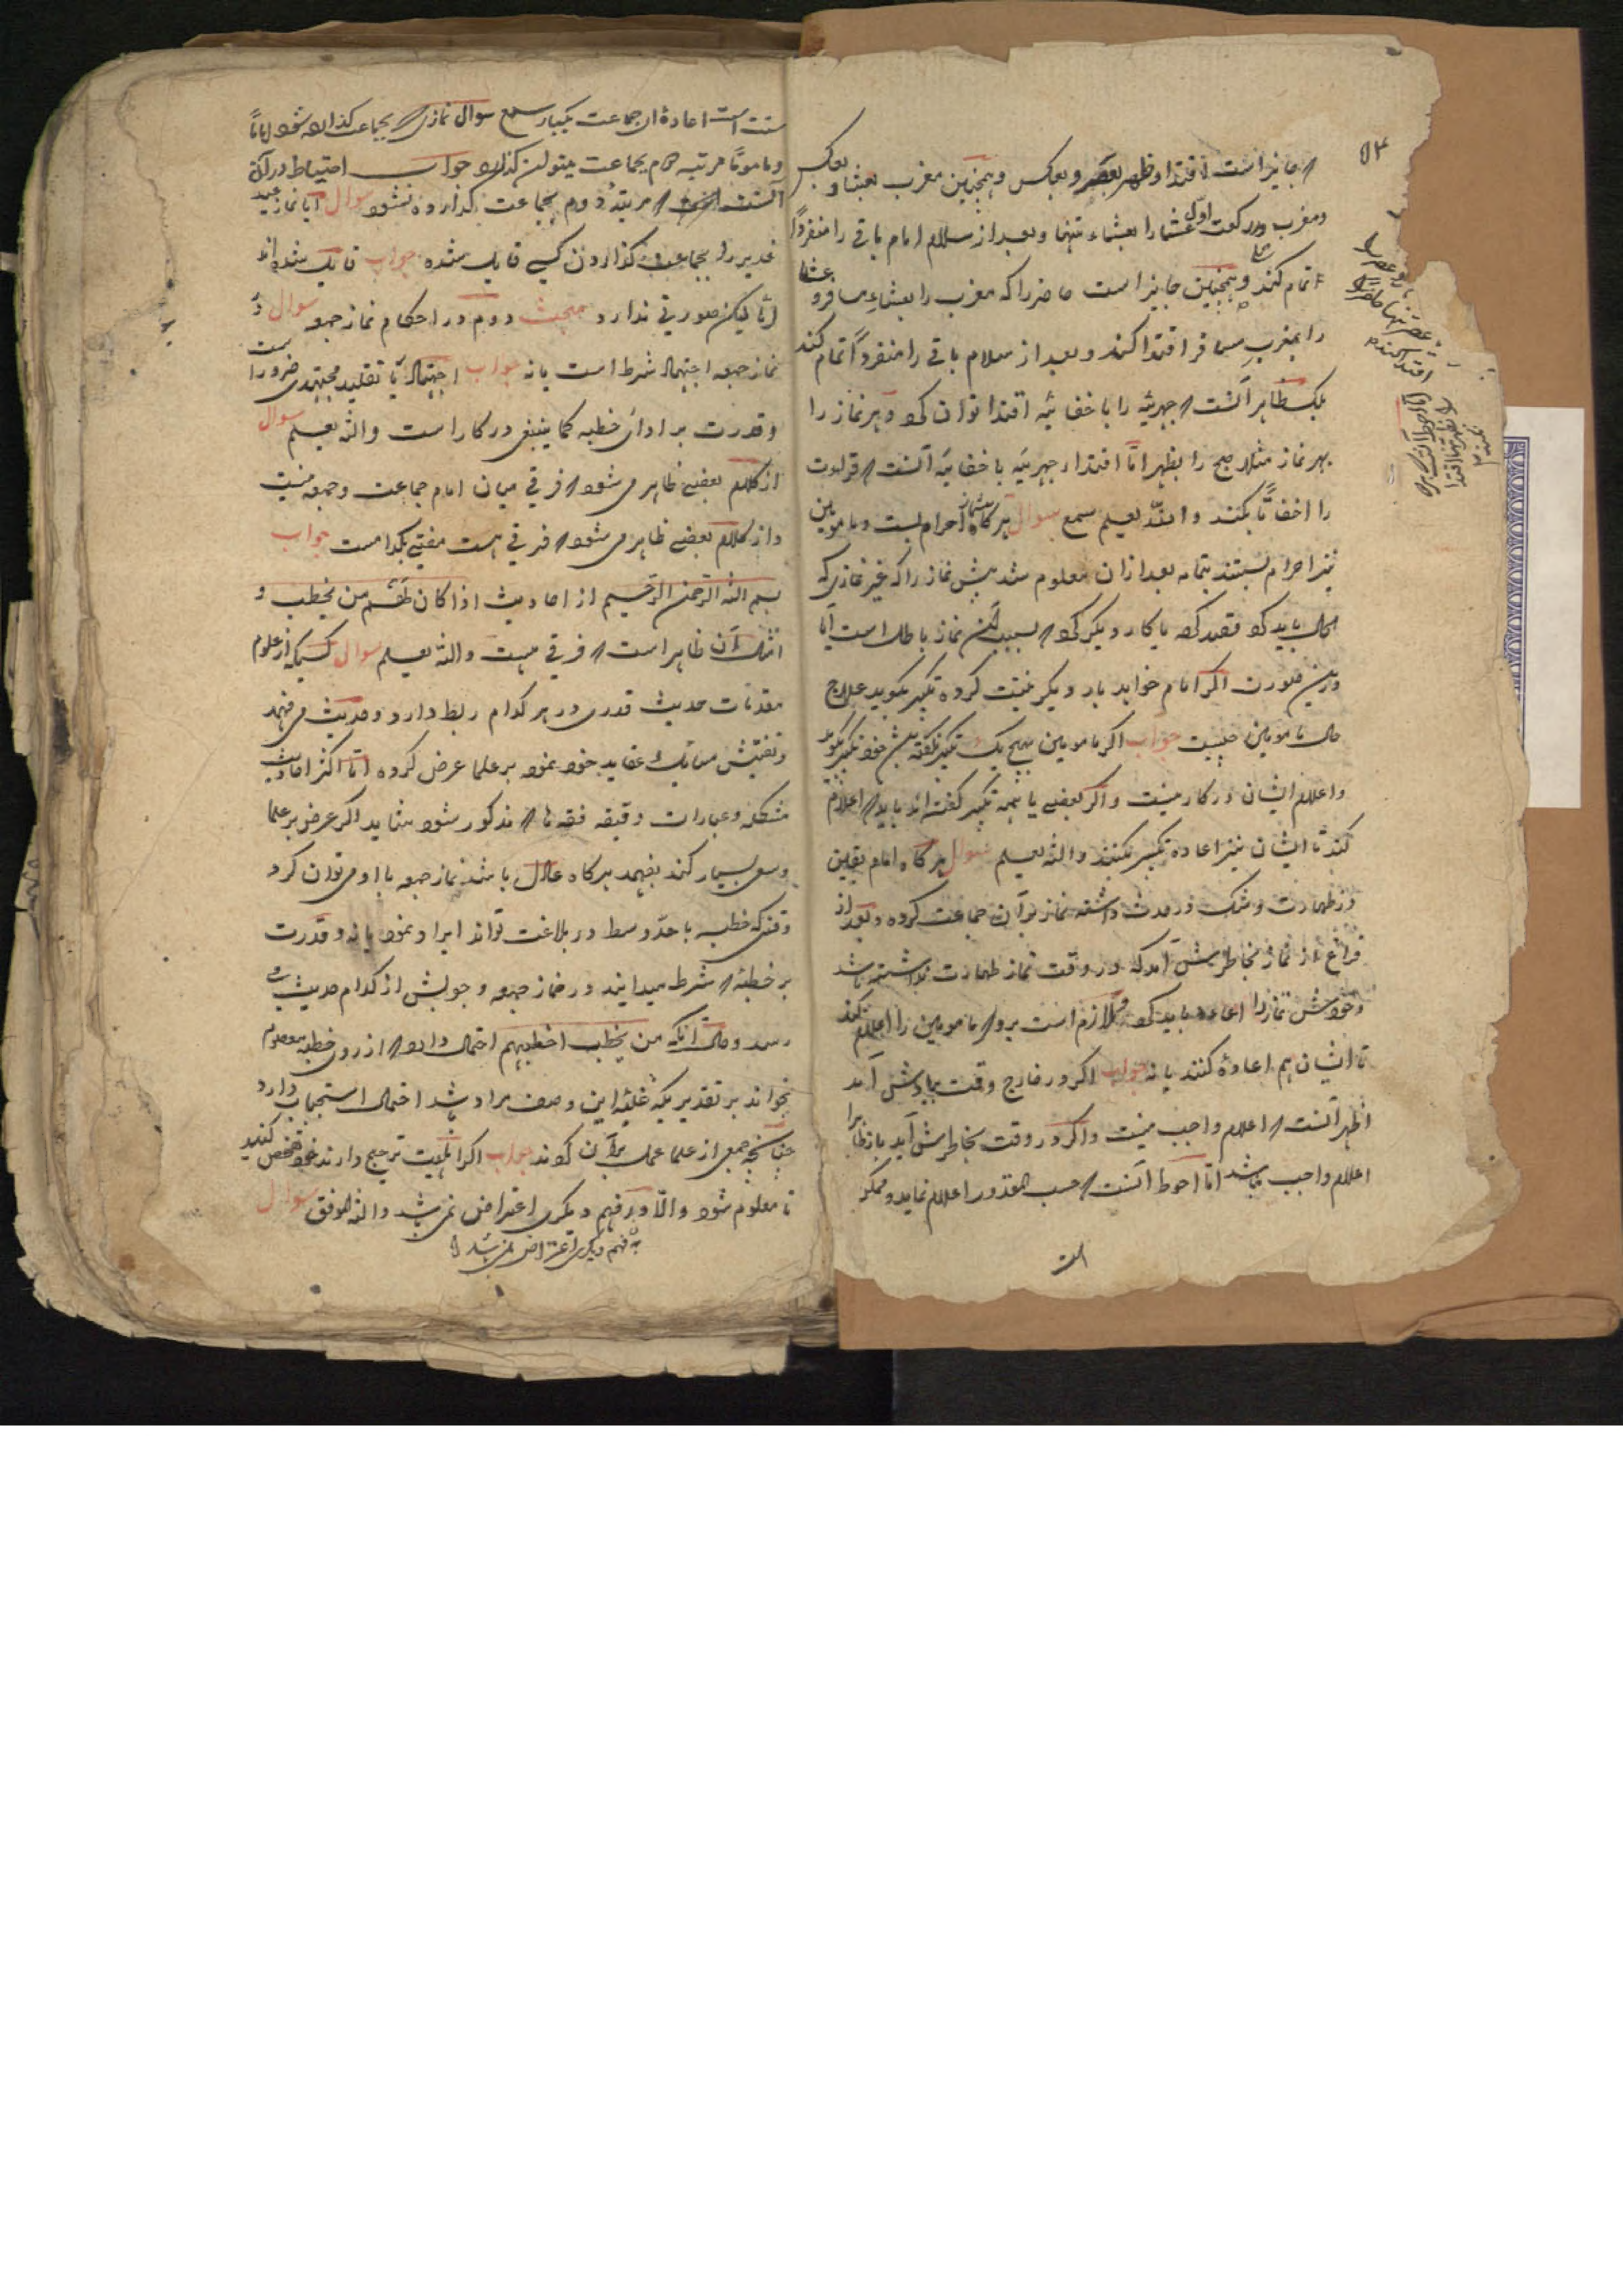 ۵۴
که جایز است اقتداء ظهر بعصر و بعکس و همچنین مغرب بعشا و بعکس
و مغرب و دو رکعت اول عشا را بعشاء تنها و بعد از سلام امام باقی را منفرداً
اتمام کند و همچنین جایز است حاضر را که مغرب را بعشاء مسافر و عشا
را بمغرب مسافر اقتدا کند و بعد از سلام باقی را منفرداً تمام کند
بلک ظاهر آنست که جهریه را باخفاتیه اقتدا توان کرد و هر نماز را
بهر نماز مثلا صبح را بظهر اما اقتداء جهریه باخفاتیه آنست که قراءت
را اخفاتا بکند و الله یعلم سمع سوال هر گاه پیشنماز احرام بست و مامومین
نیز احرام بستند بتمامه بعد از آن معلوم شد پیش نماز را که غیر نمازی که
حال باید کرد قصد کرده یا کار دیگر کرده که بسبب آن نماز باطل است آیا
درین صورت اگر امام خواهد بار دیگر نیت کرده تکبیر بگوید علاج
حال مامومین چیست جواب اگر مامومین هیچ یک تکبیر نگفته بیش خود تکبیر بگوید
و اعلام ایشان در کار نیست و اگر بعضی یا همه تکبیر گفته اند باید که اعلام
کند تا ایشان نیز اعاده تکبیر بکنند و الله یعلم سوال هر گاه امام یقین
در طهارت و شک در حدث داشته نماز بآن جماعت کرده و بعد از
فراغ از نماز بخاطرش آمد که در وقت نماز طهارت نداشته باشد
و خودش نماز را اعاده باید کرد لازم است برو که مامومین را اعلام بکند
تا ایشان هم اعاده کنند یا نه جواب اگر در خارج وقت بیادش آمد
اظهر آنست که اعلام واجب نیست و اگر در وقت بخاطرش آید باز ظاهرا
اعلام واجب نباشد اما احوط آنست که حسب المقدور اعلام نماید و ممکن
است
سنت است اعاده آن جماعت یکبار سمع سوال نمازی که بجماعت گذارده شود اماماً
و ماموماً مرتبه سوم بجماعت میتوان گذارد جواب احتیاط در آن
آنست که مرتبه دوم بجماعت گذارده نشود سوال آیا نماز عید
غدیر را بجماعت گذاردن کسی قایل شده جواب قایل شده اند
اما لیکن صورتی ندارد مبحث دوم در احکام نماز جمعه سوال در
نماز جمعه اجتهاد شرط است یا نه جواب اجتهاد یا تقلید مجتهدی ضرور است
و قدرت بر ادای خطبه کما ینبغی در کار است و الله یعلم سوال
از کلام بعضی ظاهر می شود که فرقی میان امام جماعت و جمعه نیست
و از کلام بعضی ظاهر می شود که فرقی هست مفتی بکدامست جواب
بسم الله الرحمن الرحیم از احادیث اذا کان لهم من یخطب و
امثال آن ظاهر است که فرقی هست و الله یعلم سوال کسیکه از علوم
مقدمات حدیث قدری در هر کدام ربط دارد و حدیث می فهمد
و تفتیش مسائل عقاید خود نموده بر علما عرض کرده اما اکثر احادیث
مشکله و عبارات دقیقه فقها که مذکور شود شاید اگر عرض بر علما
و سعی بسیار کند بفهمد هر گاه عادل باشد نماز جمعه با او می توان کرد
وقتی که خطبه با حد وسط در بلاغت تواند ایراد نمود یا نه و قدرت
بر خطبه که شرط میدانند در نماز جمعه وجوبش از کدام حدیث
رسد و حال آنکه من یخطب اخطبهم احتمال دارد که از روی خطبه معلوم
بخواند بر تقدیر یکه این وصف مراد باشد احتمال استحباب دارد
چنانچه جمعی از علما عمل بآن کردند جواب اگر اهلیت ترجیح دارند خود تفحص کنند
تا معلوم شود و الا و بر فهم دیگری اعتراض نمی باشد و الله الموفق سوال
به فهم دیگری اعتراض نمی باشد